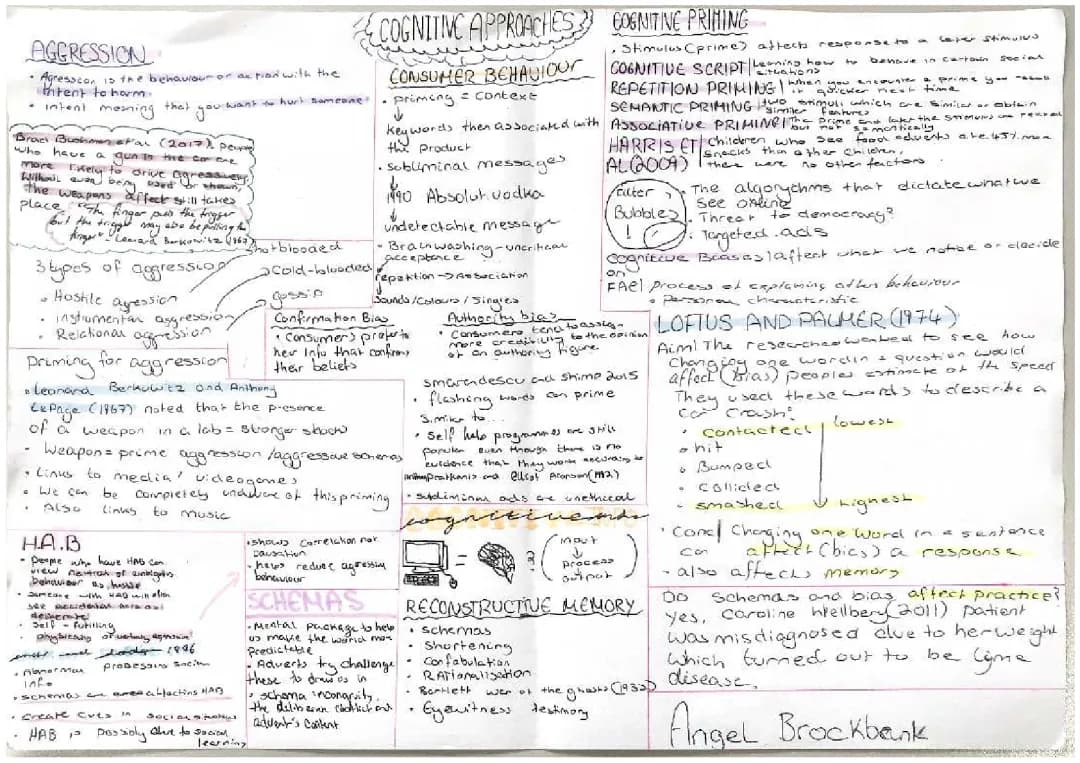 COGNITIVE APPROACHES
AGGRESSION
• Agression is the behaviour or action with the
intent to harm.
• Intent meaning that you want to hurt someone
Brad Bushman et al (2017) people
who have a gun in the car are
more likely to drive agressively.
Without even being used or shown,
the weapons affect still takes
place
"The finger pulls the trigger
but the trigger may also be pulling the
finger" - Leonard Berkowitz (1967)
3 types of aggression
• Hostile agression
hotblooded
• instrumental aggression
Cold-blooded
• Relational aggression
gossip
Priming for aggression
• Leonard Berkowitz and Anthony
LePage (1967) noted that the presence
of a weapon in a lab = stronger shocks
• Weapon = prime aggression /aggressive schemas
• Links to media/videogames
• We can be completely unaware of this priming
• Also links to music
H.A.B
• people who have HAB can
view neutral or
behaviour as hostile
• Someone with HAB will also
see accidental acts as
deliberate
• Self-fulfilling
• physically or
1986
• Abnormal processing social
info
• schemas are affecting HAB
• Create cues in social situations
• HAB is possibly due to social
learning
• shows correlation not
causation
• helps reduce agressive
behaviour
SCHEMAS
• Mental package to help
us make the world more
predictable
• Adverts try challenge
these to draw us in
• schema incongruity,
the deliberate conflict
advert's content
CONSUMER BEHAVIOUR
• priming = context
keywords then associated with
the product
• subliminal messages
1990 Absolut vodka
undetectable message
• Brainwashing - uncritical
acceptance
repetition → Association
Sounds/Colours/Jingles
Confirmation Bias
• Consumers prefer to
hear info that confirms
their beliefs
Authority bias
• Consumers tend to assign
more credibility to the opinion
of an authority figure
Smarandescu and Shimp 2015
• flashing words can prime
similar to...
• Self help programmes are still
popular even though there is no
evidence that they work according to
and Elliot Aronson (1992)
• subliminal ads are unethical
=
(input
process
output)
RECONSTRUCTIVE MEMORY
• schemas
• Shortening
• Confabulation
• RAtionalisation
• Bartlett war of the ghosts (1932)
• Eyewitness testimony
COGNITIVE PRIMING
• Stimulus (prime) affects response to a later stimulus
COGNITIVE SCRIPT | Learning how to behave in certain social
situations
REPETITION PRIMING | When you encounter a prime you
it quicker next time
SEMANTIC PRIMING | two stimuli which are similar or obtain
similar features
ASSOCIATIVE PRIMING | The prime and later the stimulus are related
but not semantically
HARRIS ET AL (2009) | Children who see food adverts ate 45% more
snacks than other children,
there were no other factors
Filter
Bubbles
!
• The algorythms that dictate what we
see online
• Threat to democracy?
• Targeted ads
Cognitive Biases | affect what we notice or decide
on
FAE | process of explaining others behaviour
• Personal characteristic
LOFTUS AND PALMER (1974)
Aim | The researchers wanted to see how
Changing one word in a question would
affect (bias) peoples estimate of the speed
They used these words to describe a
car crash:
• contacted
lowest
• hit
• Bumped
• collided
• smashed
highest
• Conc | Changing one word in a sentence
can affect (bias) a response
- also affects memory
Do schemas and bias affect practice?
Yes, Caroline Wellbery (2011) patient
was misdiagnosed due to her weight
which turned out to be lyme
disease.
Angel Brockbank